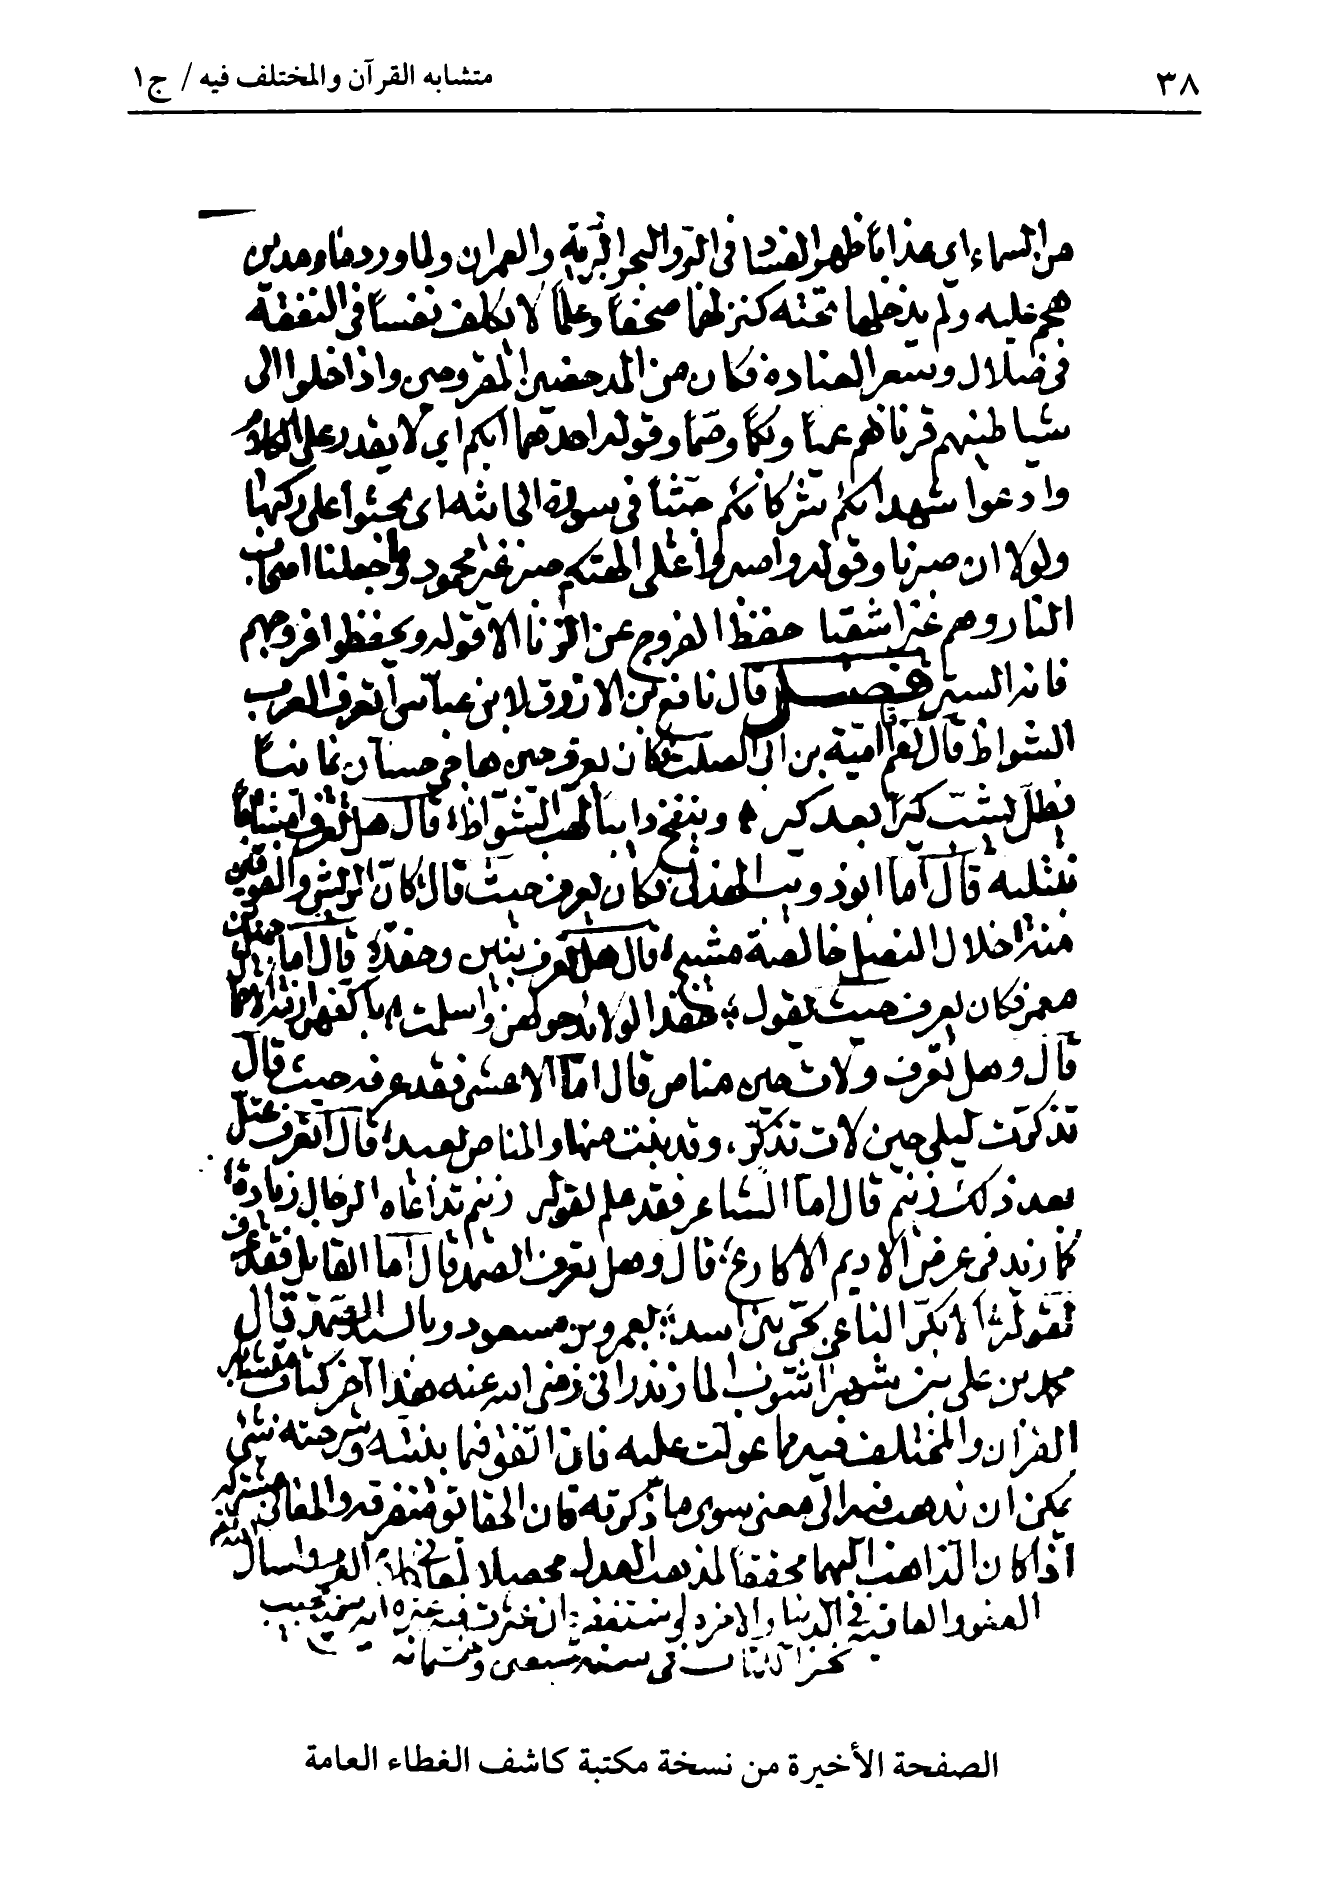 ٣٨
متشابه القرآن والمختلف فيه / ج١
من السماء اى عذابا ظهر الفساد فى البر والبحر البرية والعمران ولما ورد ماء مدين
هجم عليه ولم يدخلها تحته كنز لهما صحفا وعلما لا نكلف نفسا فى النفقة
فى ضلال وسعر العناد فكان من المدحضين المقروعين واذا خلوا الى
شياطينهم قرناهم عميا وبكما وصما وقوله احدهما ابكم اى لا يقدر على الكلام
وادعوا شهداءكم شركاءكم جثيا فى سورة الجاثية اى يجثوا على ركبها
ولولا ان صبرنا وقوله واصبروا على الهتكم صبر غير محمود وما جعلنا اصحاب
النار وهم غير اشقيا حفظ الفروج عن الزنا الا قوله ويحفظوا فروجهم
فانه الستر فصل قال نافع بن الازرق لابن عباس أتعرف العرب
الشواظ قال نعم امية بن ابى الصلت كان يعرف حين هاجى حسان يمانيا
يظل يشب كيرا بعد كير وينفخ دايبا لهب الشواظ قال هل تعرف امشاج
نبتليه قال اما ابو ذويب الهذلى فكان يعرف حيث قال كان الريش والفوقين
منه خلال النصل خالصة مشيج قال هل تعرف بنين وحفدة قال اما جميل بن
معمر فكان يعرف حيث يقول حفد الولايد حولهن واسلمت باكفهن ازمة الاجمال
قال وهل تعرف ولات حين مناص قال اما الاعشى فقد عرفه حيث قال
تذكرت ليلى حين لات تذكر وقد بنت منها والمناص بعيد قال أتعرف عتل
بعد ذلك زنيم قال اما الشاعر فقد علم لقوله زنيم تداعاه الرجال زيادة
كما زيد فى عرض الاديم الاكارع قال وهل يعرف الصمد قال اما القايل فقد عرف
لقوله الا بكر الناعى بخيرى بنى اسد بعمرو بن مسعود وبالسيد الصمد قال
محمد بن على بن شهراشوب المازندرانى رضى الله عنه هذا آخر كتاب متشابه
القرآن والمختلف فيه مما عولت عليه فان اتفق فيما بينته وشرحته شئ
يمكن ان يذهب فيه الى معنى سوى ما ذكرته فان الحقائق متفرقة والمعانى مشتركة
اذا كان الذاهب اليها محققا لمذهب العدل محصلا لمعانى كلام العرب واسال الله
العفو والعافية فى الدنيا والاخرة لى منفعة ان عثرت فيه عثرة انه سميع مجيب
نجز الكتاب فى سنة سبعين وخمسمائة
الصفحة الأخيرة من نسخة مكتبة كاشف الغطاء العامة